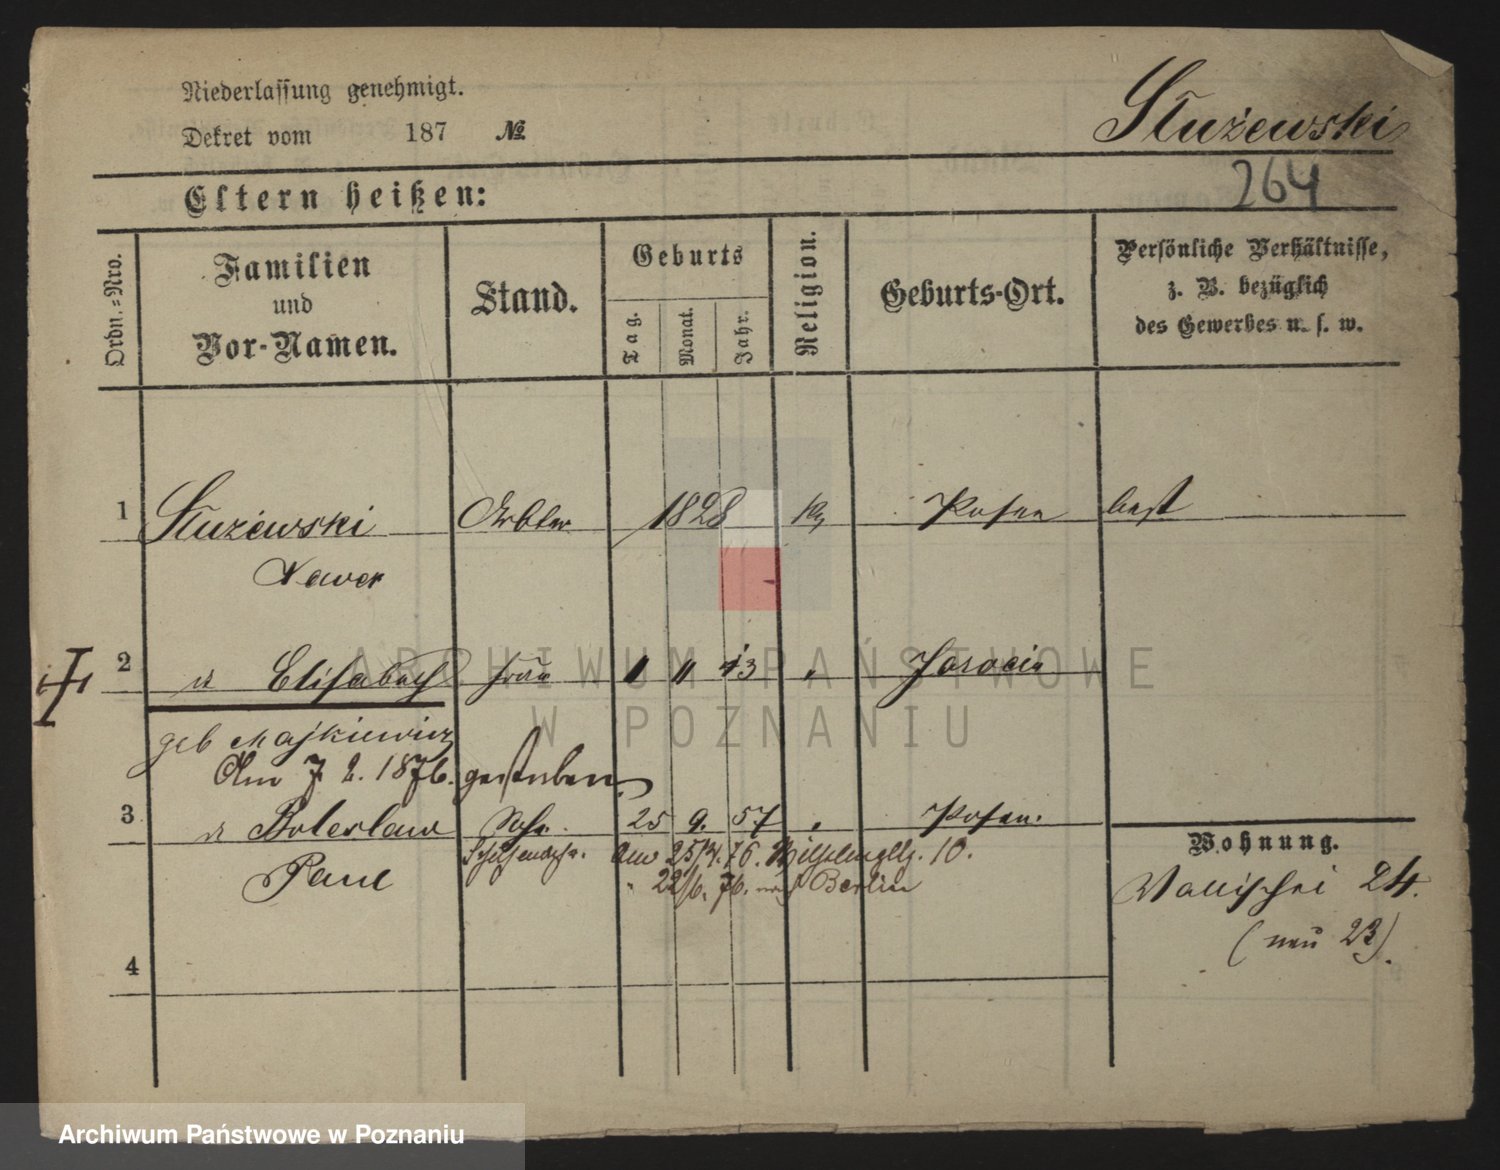 Niederlassung genehmigt.
Dekret vom 187 №
Służewski
264
Eltern heißen:
Ordn.=Nro.
Familien
und
Vor-Namen.
Stand.
Geburts
Tag.
Monat.
Jahr.
Religion.
Geburts-Ort.
Persönliche Verhältnisse,
z. B. bezüglich
des Gewerbes u. s. w.
1 Służewski Arbter 1828 Posen
Xaver
2 Elisabeth Frau 1 11 13 " Jarocin
geb Majkiewicz
Am 7. 2. 1876. gestorben
3 Boleslaw Sohn 25 9. 57 " Posen.
Paul
Am 25/4. 76. 10.
" 22/6. 76. nach Berlin
Wohnung.
Wallischei 24.
(neu 23).
4
ARCHIWUM PAŃSTWOWE
W POZNANIU
Archiwum Państwowe w Poznaniu